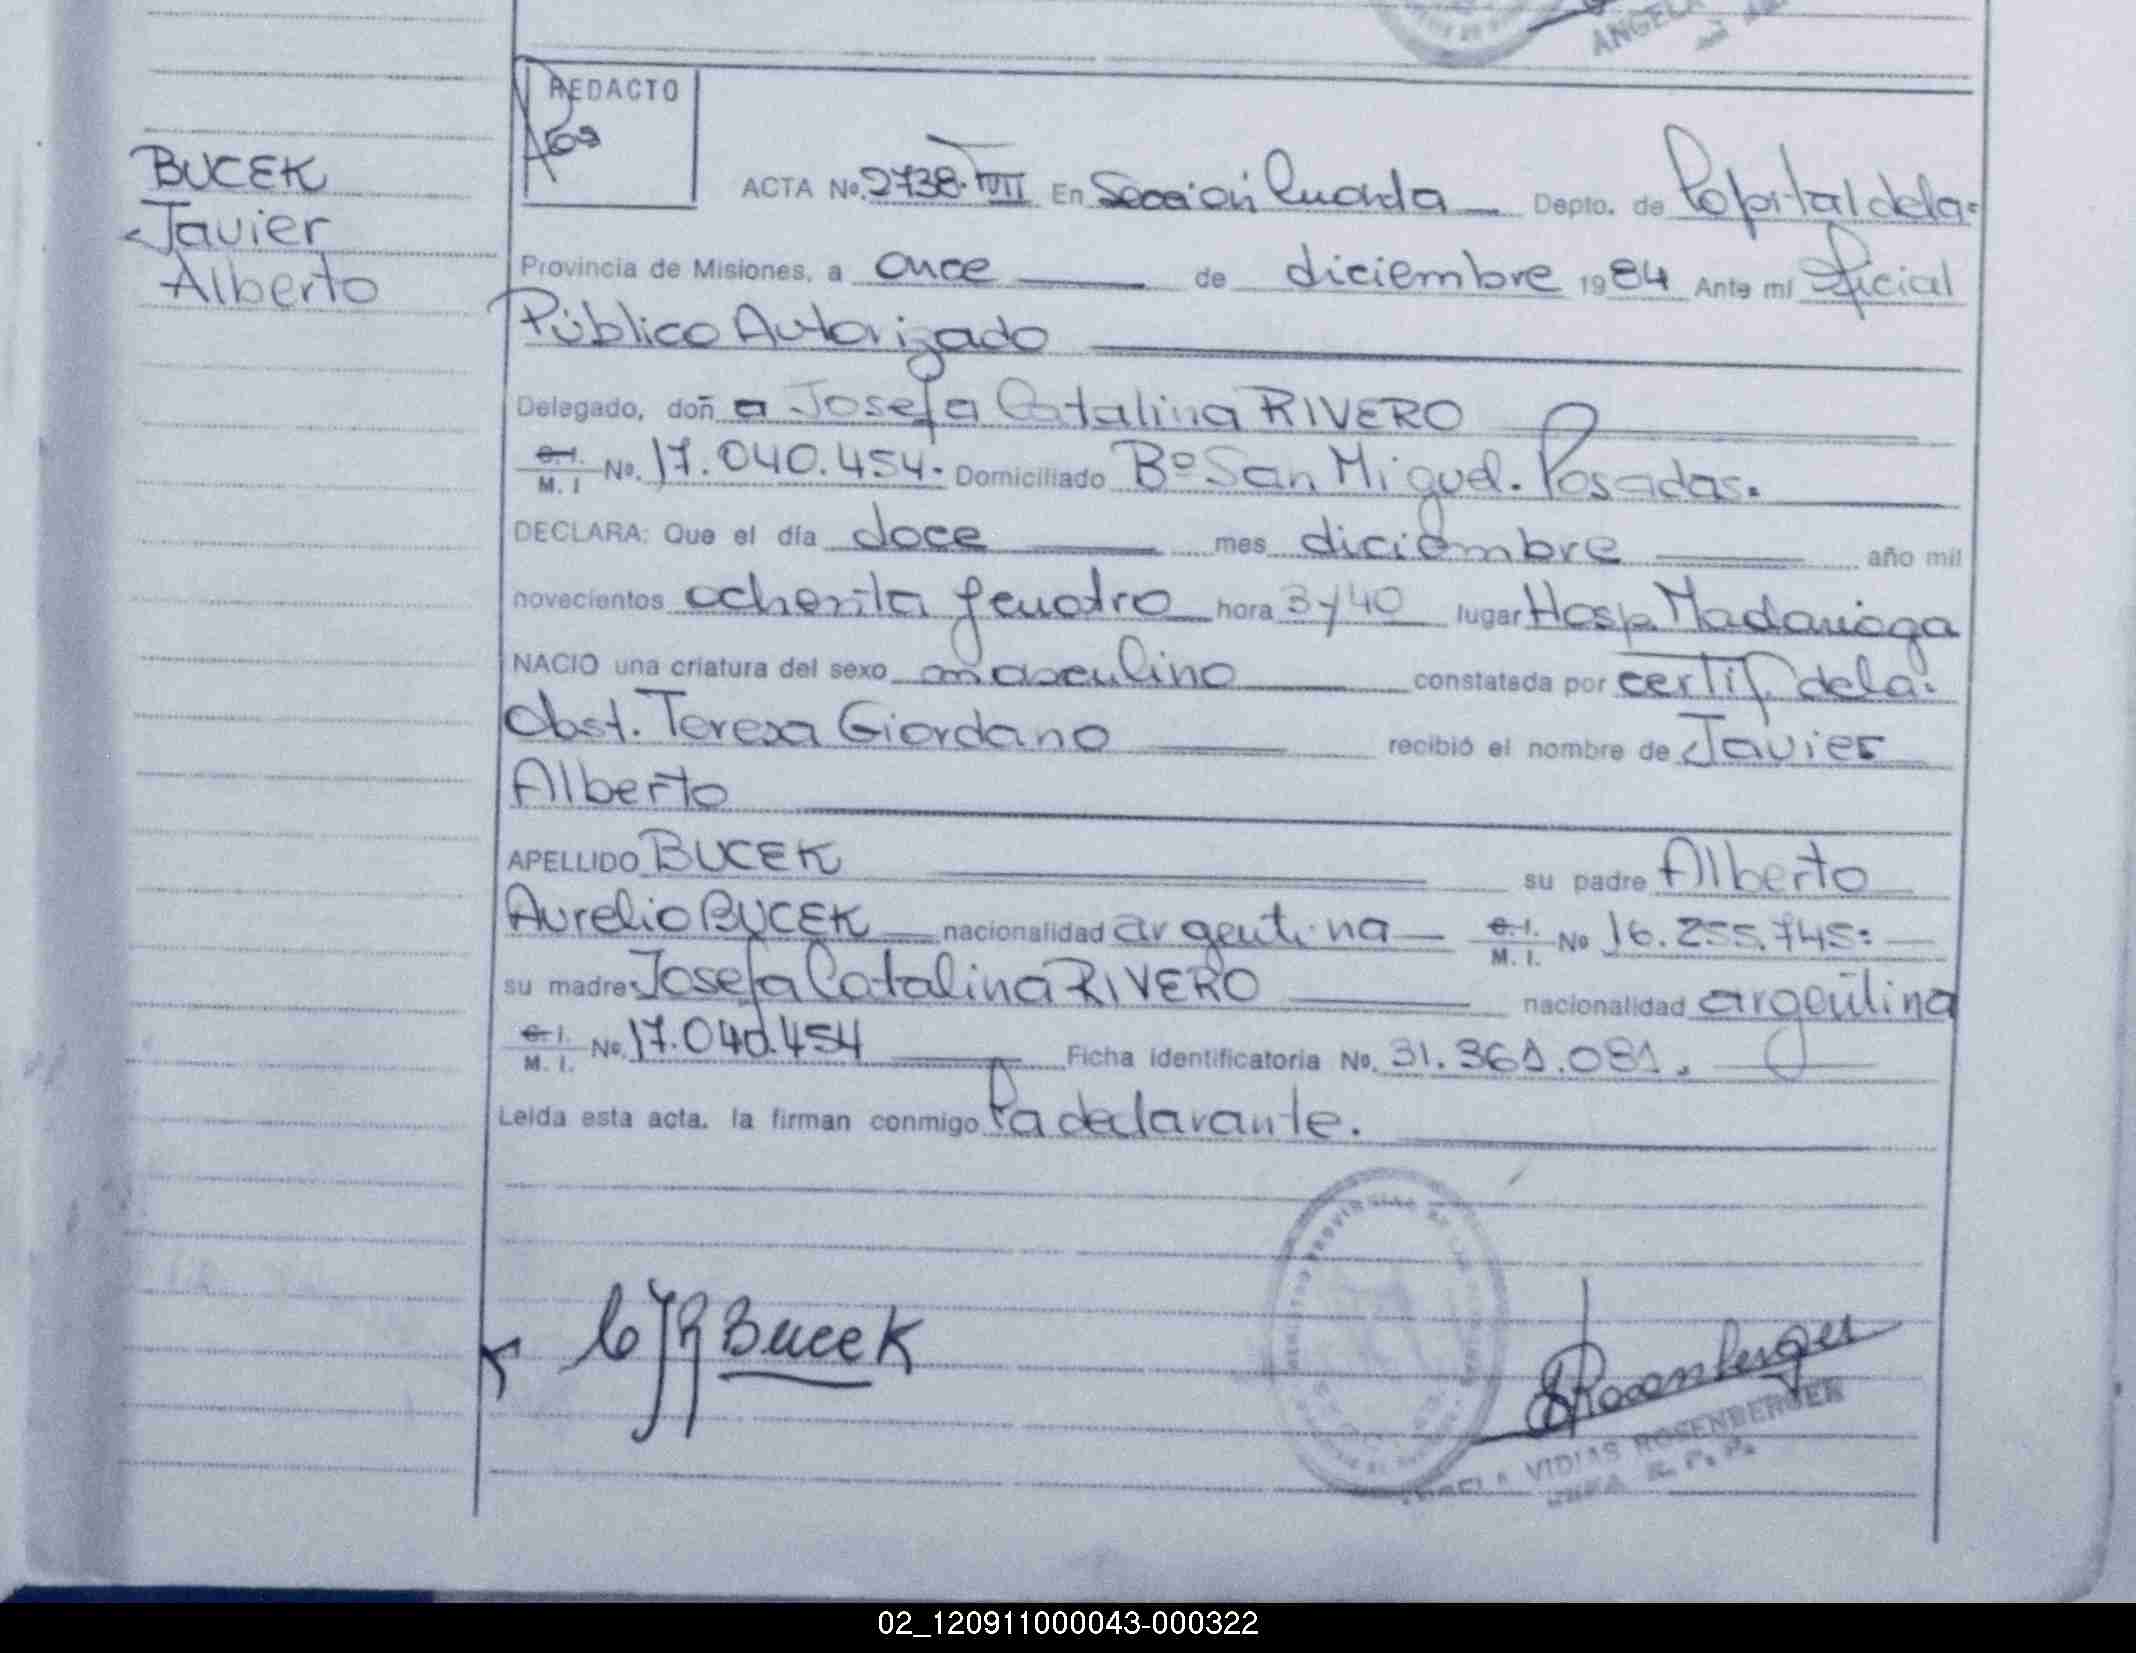 ANGELA
REDACTO
BUCEK
Javier
Alberto
ACTA No. 2738. VIII En Sección Cuarta Depto. de Capital de la
Provincia de Misiones, a once de diciembre 1984 Ante mi Oficial
Público Autorizado
Delegado, doñ a Josefa Catalina RIVERO
C. I. M. I No. 17.040.454. Domiciliado Bº San Miguel. Posadas.
DECLARA: Que el día doce mes diciembre año mil
novecientos ochenta y cuatro hora 3 y 40 lugar Hosp. Madariaga
NACIO una criatura del sexo masculino constatada por certif. de la
Obst. Teresa Giordano recibió el nombre de Javier
Alberto
APELLIDO BUCEK su padre Alberto
Aurelio BUCEK nacionalidad argentina C. I. M. I. No 16.255.745.
su madre Josefa Catalina RIVERO nacionalidad argentina
C. I. M. I. No. 17.040.454 Ficha identificatoria No. 31.361.081.
Leida esta acta, la firman conmigo la declarante.
Bucek
Rosenberger
VIDIAS ROSENBERGER
02_120911000043-000322